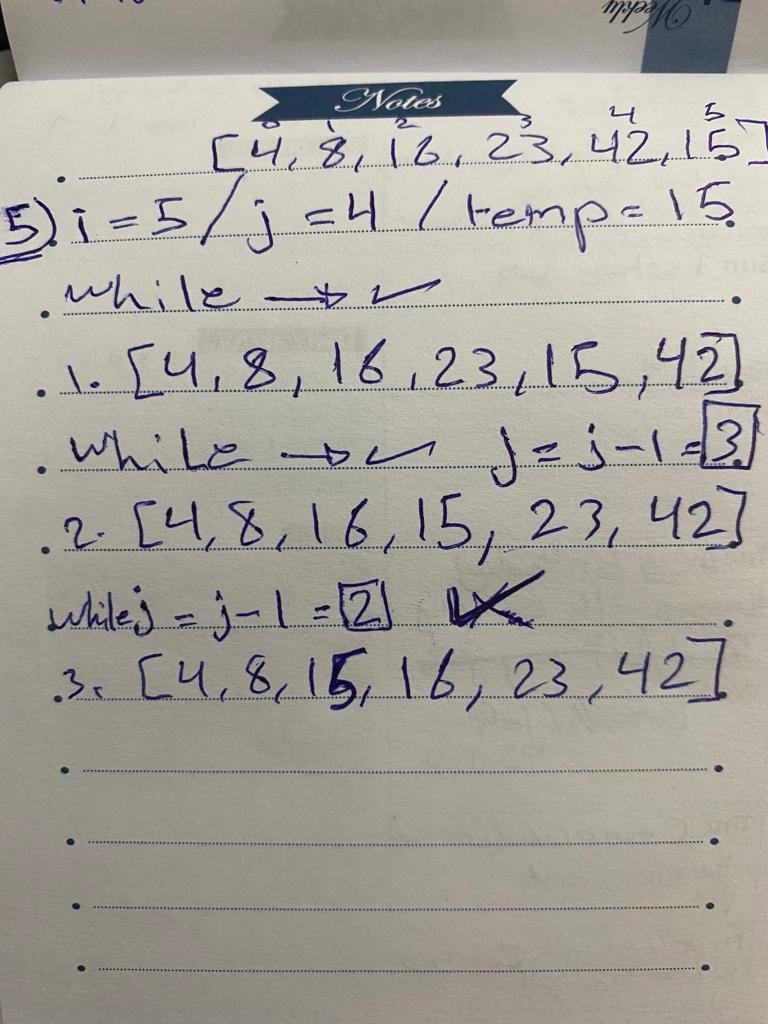 Weekly
Notes
0 1 2 3 4 5
[4, 8, 16, 23, 42, 15]
5) i = 5 / j = 4 / temp = 15
while → ✓
1. [4, 8, 16, 23, 15, 42]
while → ✓ j = j-1 = 3
2. [4, 8, 16, 15, 23, 42]
while j = j-1 = 2
3. [4, 8, 15, 16, 23, 42]